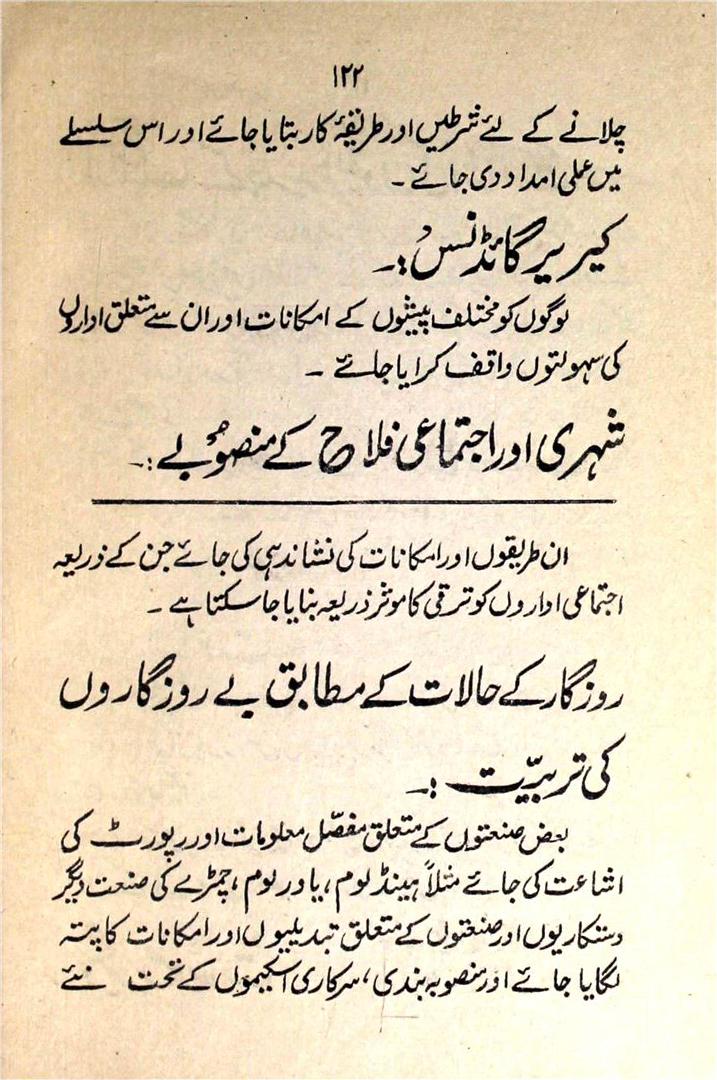 ۱۲۲
چلانے کے لئے شرطیں اور طریقۂ کار بتایا جائے اور اس سلسلے
میں عملی امداد دی جائے ۔
کیریر گائڈنس :۔
لوگوں کو مختلف پیشوں کے امکانات اور ان سے متعلق اداروں
کی سہولتوں واقف کرایا جائے ۔
شہری اور اجتماعی فلاح کے منصوبے :۔
ان طریقوں اور امکانات کی نشاندہی کی جائے جن کے ذریعہ
اجتماعی اداروں کو ترقی کا موثر ذریعہ بنایا جا سکتا ہے ۔
روزگار کے حالات کے مطابق بے روزگاروں
کی تربیّت :۔
بعض صنعتوں کے متعلق مفصّل معلومات اور رپورٹ کی
اشاعت کی جائے مثلاً ہینڈ لوم ، پاور لوم ، چمڑے کی صنعت دیگر
دستکاریوں اور صنعتوں کے متعلق تبدیلیوں اور امکانات کا پتہ
لگایا جائے اور منصوبہ بندی ، سرکاری اسکیموں کے تحت نئے